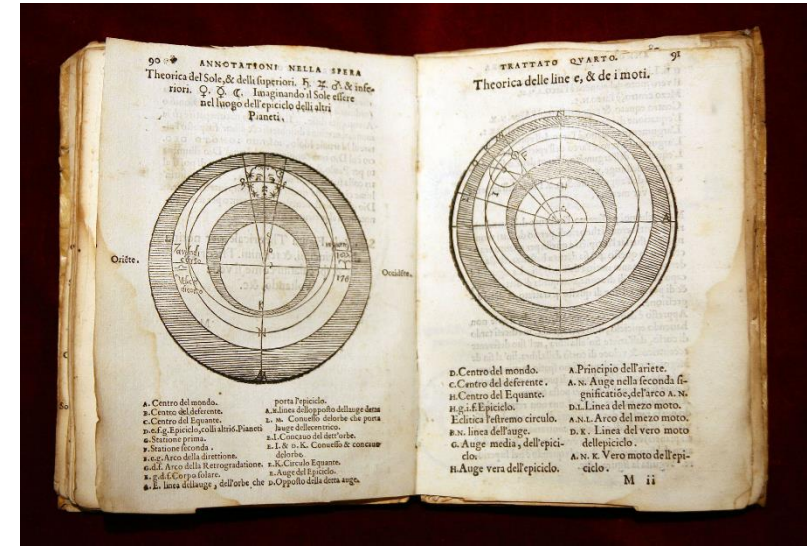 90 ANNOTATIONI NELLA SPERA
Theorica del Sole, & delli superiori. ♄. ♃. ♂. & infe-
riori. ♀. ☿. ☾. Imaginando il Sole essere
nel luogo dell'epiciclo delli altri
Pianeti.
Oriẽte.
Occidẽte.
A. Centro del mondo.
B. Centro del deferente.
C. Centro del Equante.
D.e.f.g. Epiciclo, colli altri 6. Pianeti
G. Statione prima.
F. Statione seconda.
E.e.g. Arco della direttione.
G.d.f. Arco della Retrogradatione.
E.g.d.f. Corpo solare.
A. E. linea dellauge, dell'orbe che
porta l'epiciclo.
A.N. linea dell opposto dellauge detta
L. M. Conuesso delorbe che porta
lauge delleccentrico.
E.I. Concauo del dett'orbe.
E. I. & O. K. Conuesso & concauo
delorbe.
E.K. Circulo Equante.
E. Auge del Epiciclo.
D. Opposto della detta auge.
TRATTATO QVARTO. 91
Theorica delle line e, & de i moti.
D. Centro del mondo.
C. Centro del deferente.
H. Centro del Equante.
H.g.i.f. Epiciclo.
Eclitica l'estremo circulo.
B.N. linea dell'auge.
G. Auge media, dell'epici-
clo.
H. Auge vera dell'epiciclo.
A. Principio dell'ariete.
A. N. Auge nella seconda si-
gnificatiõe, del'arco A. N.
D.L. Linea del mezo moto.
A.N.L. Arco del mezo moto.
D. K. Linea del vero moto
dellepiciclo.
A. N. K. Vero moto dell'epi-
ciclo.
M ii